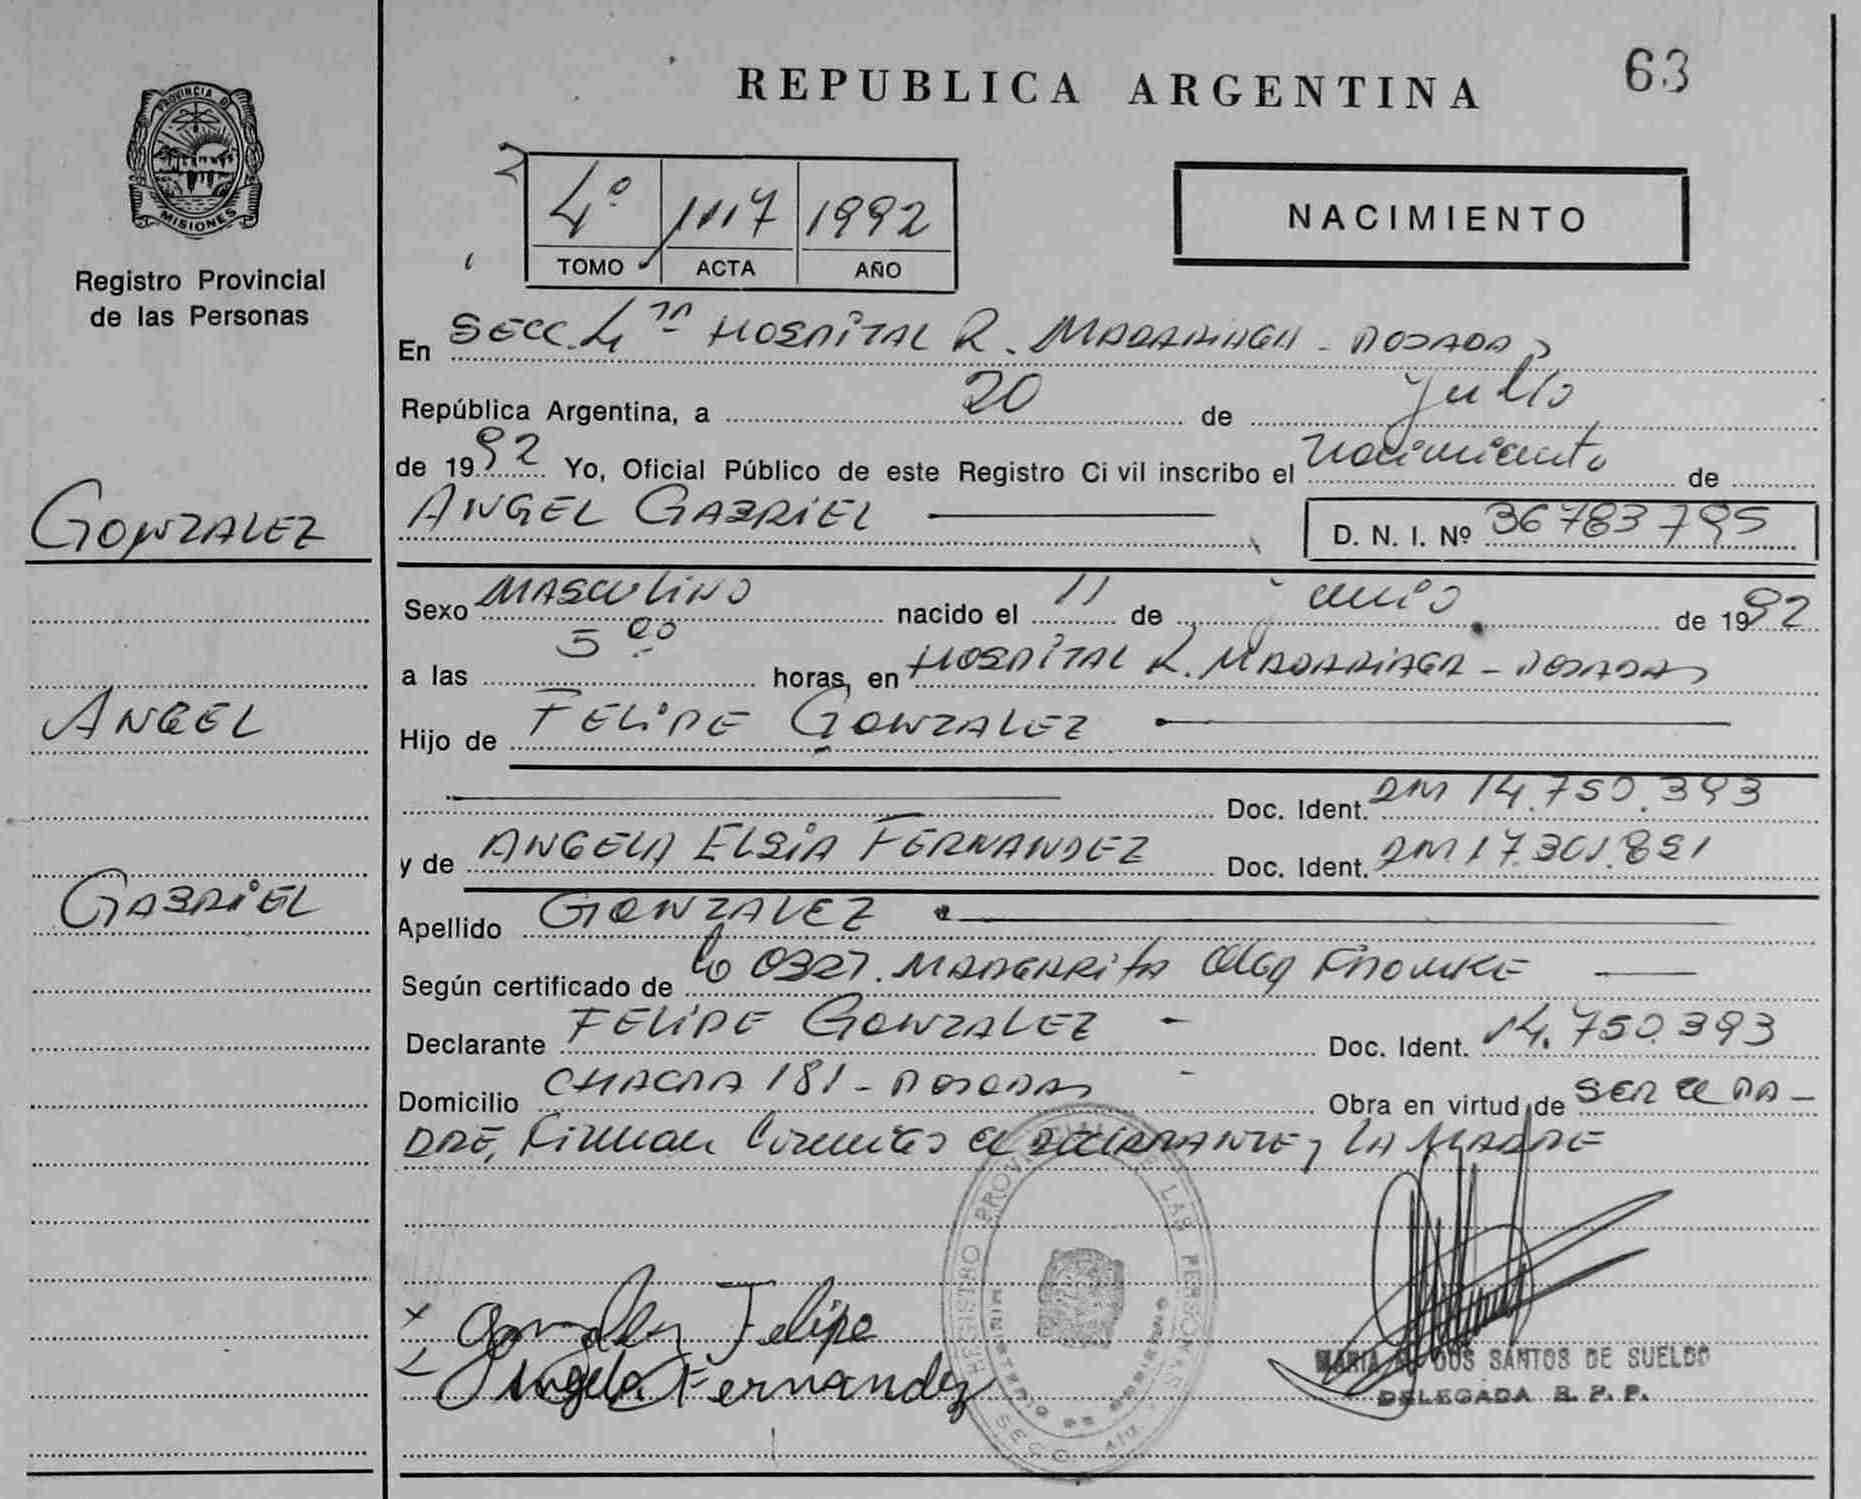 63
REPUBLICA ARGENTINA
PROVINCIA DE
MISIONES
Registro Provincial
de las Personas
4º 1117 1992
TOMO ACTA AÑO
NACIMIENTO
En SECC. 4ta HOSPITAL R. MADARIAGA - POSADAS
República Argentina, a 20 de Julio
de 1992 Yo, Oficial Público de este Registro Civil inscribo el nacimiento de
GONZALEZ
ANGEL GABRIEL D. N. I. Nº 36783795
Sexo MASCULINO nacido el 11 de Junio de 1992
a las 5 00 horas, en HOSPITAL R. MADARIAGA - POSADAS
ANGEL
Hijo de FELIPE GONZALEZ
Doc. Ident. DM 14.750.393
y de ANGELA ELSIA FERNANDEZ Doc. Ident. DM 17.301.821
GABRIEL
Apellido GONZALEZ
Según certificado de Lo 0327. MARGARITA Olga
Declarante FELIPE GONZALEZ - Doc. Ident. 14.750.393
Domicilio CHACRA 181 - POSADAS - Obra en virtud de SER el PA-
DRE, Firman el DECLARANTE y LA MADRE
REGISTRO PROVINCIAL DE LAS PERSONAS
MINISTERIO DE GOBIERNO
x Gonzalez Felipe
Angela Fernandez
MARIA DOS SANTOS DE SUELDO
DELEGADA R. P. P.